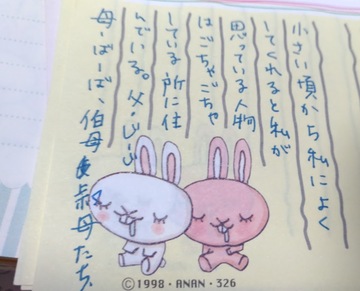 小さい頃から私によく
してくれると私が
思っている人物
はごちゃごちゃ
している所に住
んでいる。父・じーじ
母・ばーば、伯母叔母たち、
©1998・ANAN・326